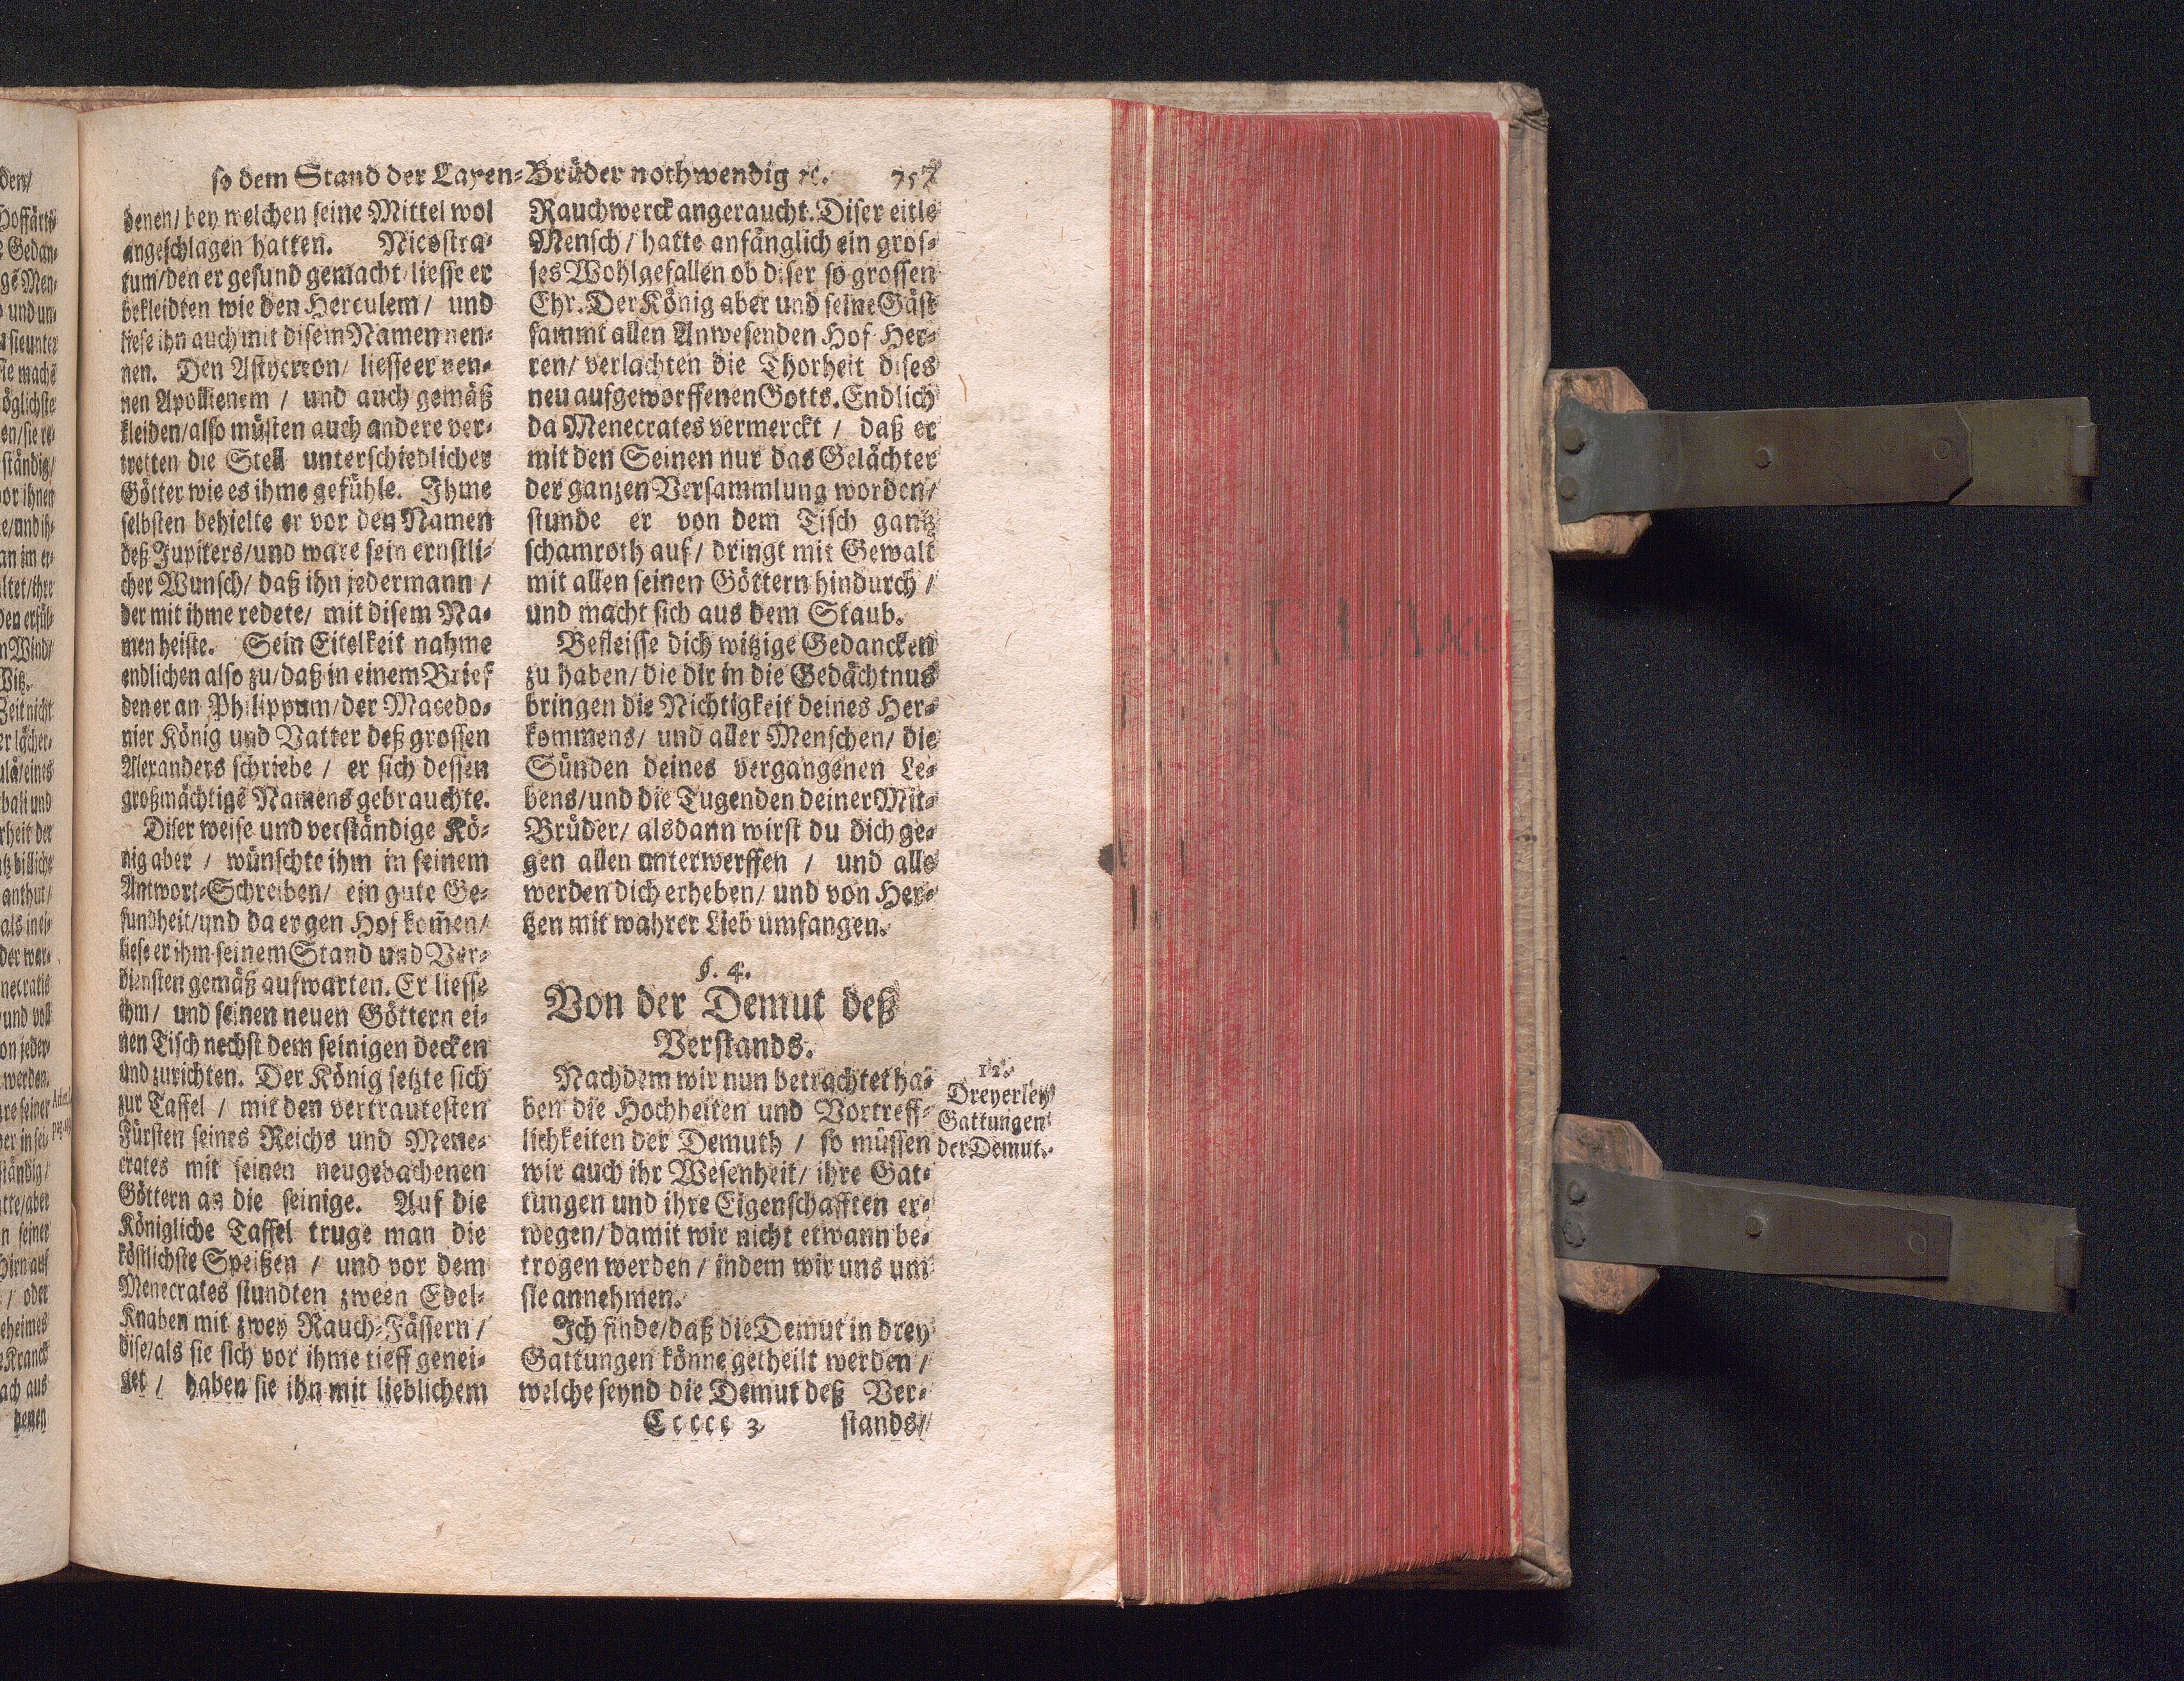 so dem Stand der Layen-Brüder nothwendig ꝛc. 757
denen/ bey welchen seine Mittel wol
angeschlagen hatten. Nicostra-
tum/ den er gesund gemacht/ liesse er
bekleidten wie den Herculem/ und
liese ihn auch mit disem Namen nen-
nen. Den Astycreon/ liesse er nen-
nen Apollienem / und auch gemäß
kleiden/ also müsten auch andere ver-
tretten die Stell unterschiedlicher
Götter wie es ihme gefühle. Ihme
selbsten behielte er vor den Namen
deß Jupiters/ und ware sein ernstli-
cher Wunsch/ daß ihn jedermann /
der mit ihme redete/ mit disem Na-
men heiste. Sein Eitelkeit nahme
endlichen also zu/ daß in einem Brief
den er an Philippum/ der Macedo-
nier König und Vatter deß grossen
Alexanders schriebe / er sich dessen
großmächtige Namens gebrauchte.
Diser weise und verständige Kö-
nig aber / wünschte ihm in seinem
Antwort-Schreiben/ ein gute Ge-
sundheit/ und da er gen Hof kom̃en/
liese er ihm seinem Stand und Ver-
diensten gemäß aufwarten. Er liesse
ihm/ und seinen neuen Göttern ei-
nen Tisch nechst dem seinigen decken
und zurichten. Der König setzte sich
zur Taffel / mit den vertrautesten
Fürsten seines Reichs und Mene-
crates mit seinen neugebachenen
Göttern an die seinige. Auf die
Königliche Taffel truge man die
köstlichste Speißen / und vor dem
Menecrates stundten zween Edel-
Knaben mit zwey Rauch-Fässern /
dise/ als sie sich vor ihme tieff genei-
get / haben sie ihn mit lieblichem
Rauchwerck angeraucht. Diser eitle
Mensch / hatte anfänglich ein gros-
ses Wohlgefallen ob diser so grossen
Ehr. Der König aber und seine Gäst
sammt allen Anwesenden Hof-Her-
ren/ verlachten die Thorheit dises
neu aufgeworffenen Gotts. Endlich
da Menecrates vermerckt / daß er
mit den Seinen nur das Gelächter
der ganzen Versammlung worden/
stunde er von dem Tisch gantz
schamroth auf / dringt mit Gewalt
mit allen seinen Göttern hindurch /
und macht sich aus dem Staub.
Befleisse dich witzige Gedancken
zu haben/ die dir in die Gedächtnus
bringen die Nichtigkeit deines Her-
kommens/ und aller Menschen/ die
Sünden deines vergangenen Le-
bens/ und die Tugenden deiner Mit-
Brüder/ alsdann wirst du dich ge-
gen allen unterwerffen / und alle
werden dich erheben/ und von Her-
tzen mit wahrer Lieb umfangen.
§. 4.
Von der Demut deß
Verstands.
Nachdem wir nun betrachtet ha-
ben die Hochheiten und Vortreff-
lichkeiten der Demuth / so müssen
wir auch ihr Wesenheit/ ihre Gat-
tungen und ihre Eigenschafften er-
wegen/ damit wir nicht etwann be-
trogen werden / indem wir uns um
sie annehmen.
Ich finde/ daß die Demut in drey
Gattungen könne getheilt werden /
welche seynd die Demut deß Ver-
Ccccc 3 stands/
12.
Dreyerley
Gattungen
der Demut.